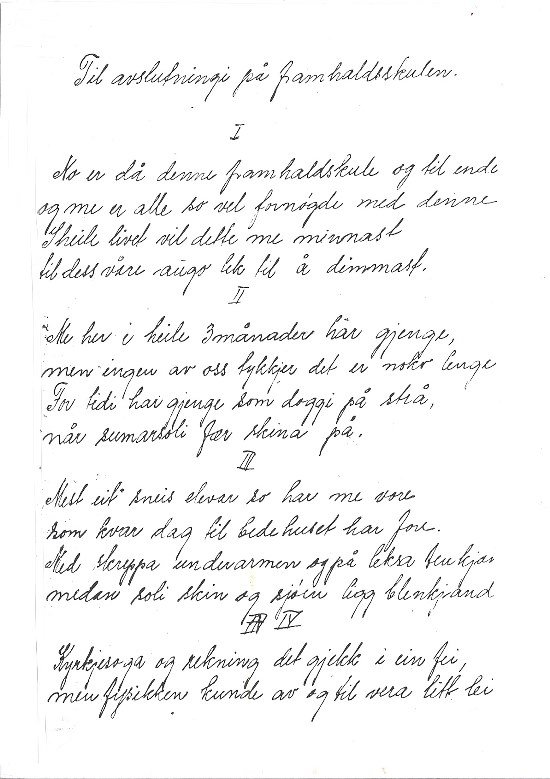 Til avslutningi på framhaldsskulen.
I
No er då denne framhaldskule og til ende
og me er alle so vel fornøgde med denne
I heile livet vil dette me minnast
til dess våre augo tek til å dimmast.
II
Me her i heile 3 månader här gjenge,
men ingen av oss tykkjer det er noko lenge
For tidi hai gjenge som doggi på strå,
når sumarsoli fær skina på.
III
Mest eit sneis elevar so har me vore
som kvar dag til bedehuset har fore.
Med skreppa underarmen og på leksa tenkjan
medan soli skin og sjøen ligg blenkjand
IV
Kyrkjesoga og rekning det gjekk i ein fei,
men fysikken kunde av og til vera litt lei